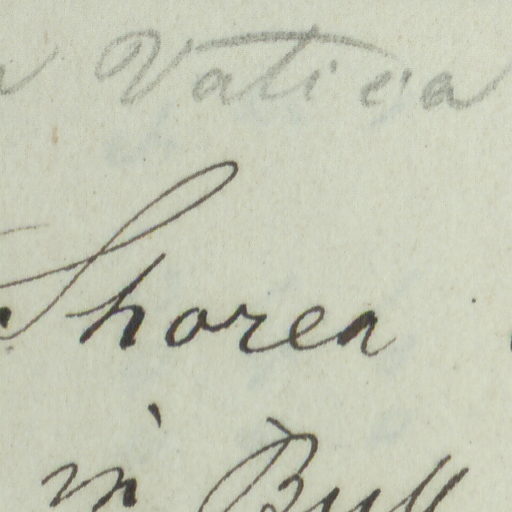 Vatica
Shorea
in Bull